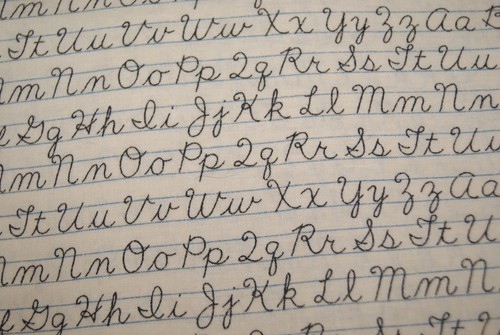 Tt Uu Vv Ww Xx Yy Zz Aa
m Nn Oo Pp Qq Rr Ss Tt Uu
Gg Hh Ii Jj Kk Ll Mm Nn
m Nn Oo Pp Qq Rr Ss Tt Uu
Tt Uu Vv Ww Xx Yy Zz Aa
m Nn Oo Pp Qq Rr Ss Tt U
Gg Hh Ii Jj Kk Ll Mm N